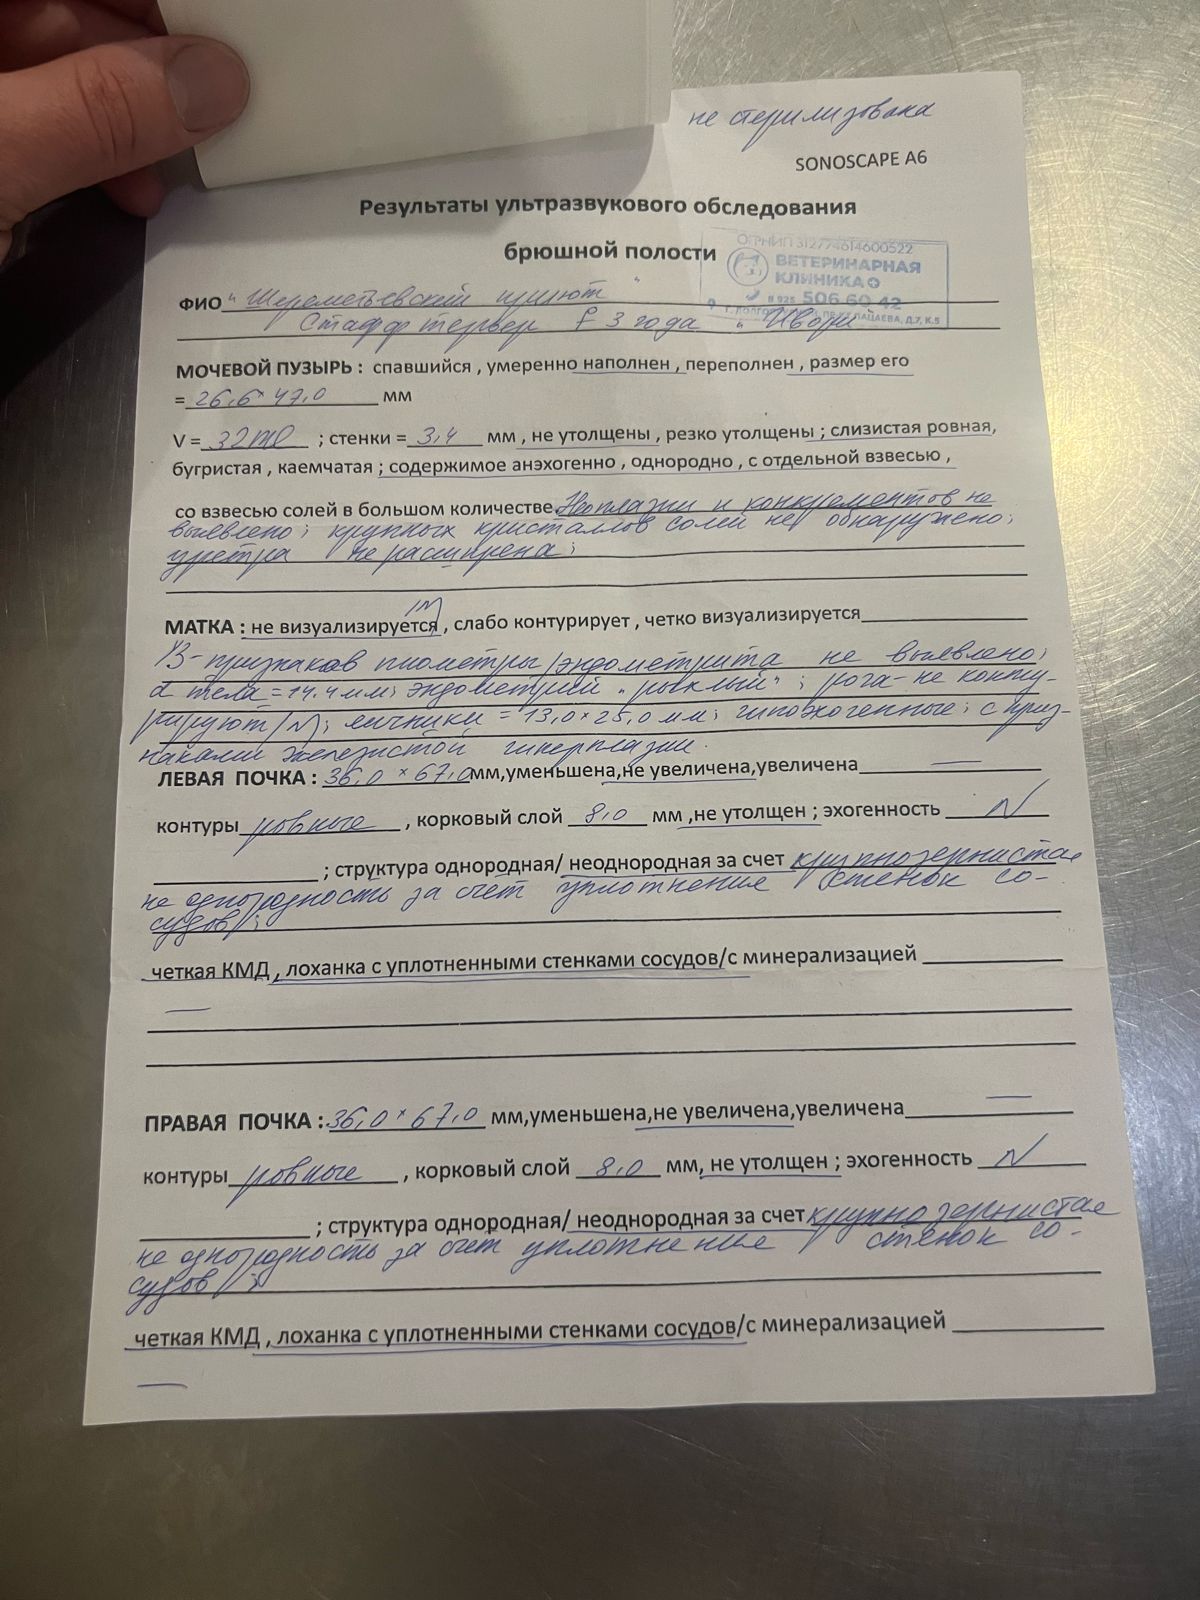 не стерилизована
SONOSCAPE A6
Результаты ультразвукового обследования
брюшной полости
ОГРНИП 312774614600522
ВЕТЕРИНАРНАЯ
КЛИНИКА
8 925 506 60 42
ПАЦАЕВА, Д.7, К.5
ФИО "Шереметьевский приют"
Стафф терьер f 3 года "Айвори"
МОЧЕВОЙ ПУЗЫРЬ : спавшийся , умеренно наполнен , переполнен , размер его
= 26,6 × 47,0 мм
V = 32 ml ; стенки = 3,4 мм , не утолщены , резко утолщены ; слизистая ровная,
бугристая , каемчатая ; содержимое анэхогенно , однородно , с отдельной взвесью ,
со взвесью солей в большом количестве. Неоплазии и конкрементов не
выявлено; крупных кристаллов солей не обнаружено;
уретра не расширена;
МАТКА : не визуализируется /N/ , слабо контурирует , четко визуализируется
УЗ-признаков пиометры/эндометрита не выявлено;
d тела = 14.4 мм; эндометрий "рыхлый" ; рога - не конту-
рируют /N/; яичники = 13,0 × 25,0 мм; гипоэхогенные; с приз-
наками железистой гиперплазии.
ЛЕВАЯ ПОЧКА : 36,0 × 67,0 мм,уменьшена,не увеличена,увеличена —
контуры ровные , корковый слой 8,0 мм ,не утолщен ; эхогенность N
; структура однородная/ неоднородная за счет крупнозернистая
неоднородность за счет уплотнения стенок со-
судов/;
четкая КМД , лоханка с уплотненными стенками сосудов/с минерализацией
—
ПРАВАЯ ПОЧКА : 36,0 × 67,0 мм,уменьшена,не увеличена,увеличена —
контуры ровные , корковый слой 8,0 мм, не утолщен ; эхогенность N
; структура однородная/ неоднородная за счет крупнозернистая
неоднородность за счет уплотнения стенок со-
судов/;
четкая КМД , лоханка с уплотненными стенками сосудов/с минерализацией
—